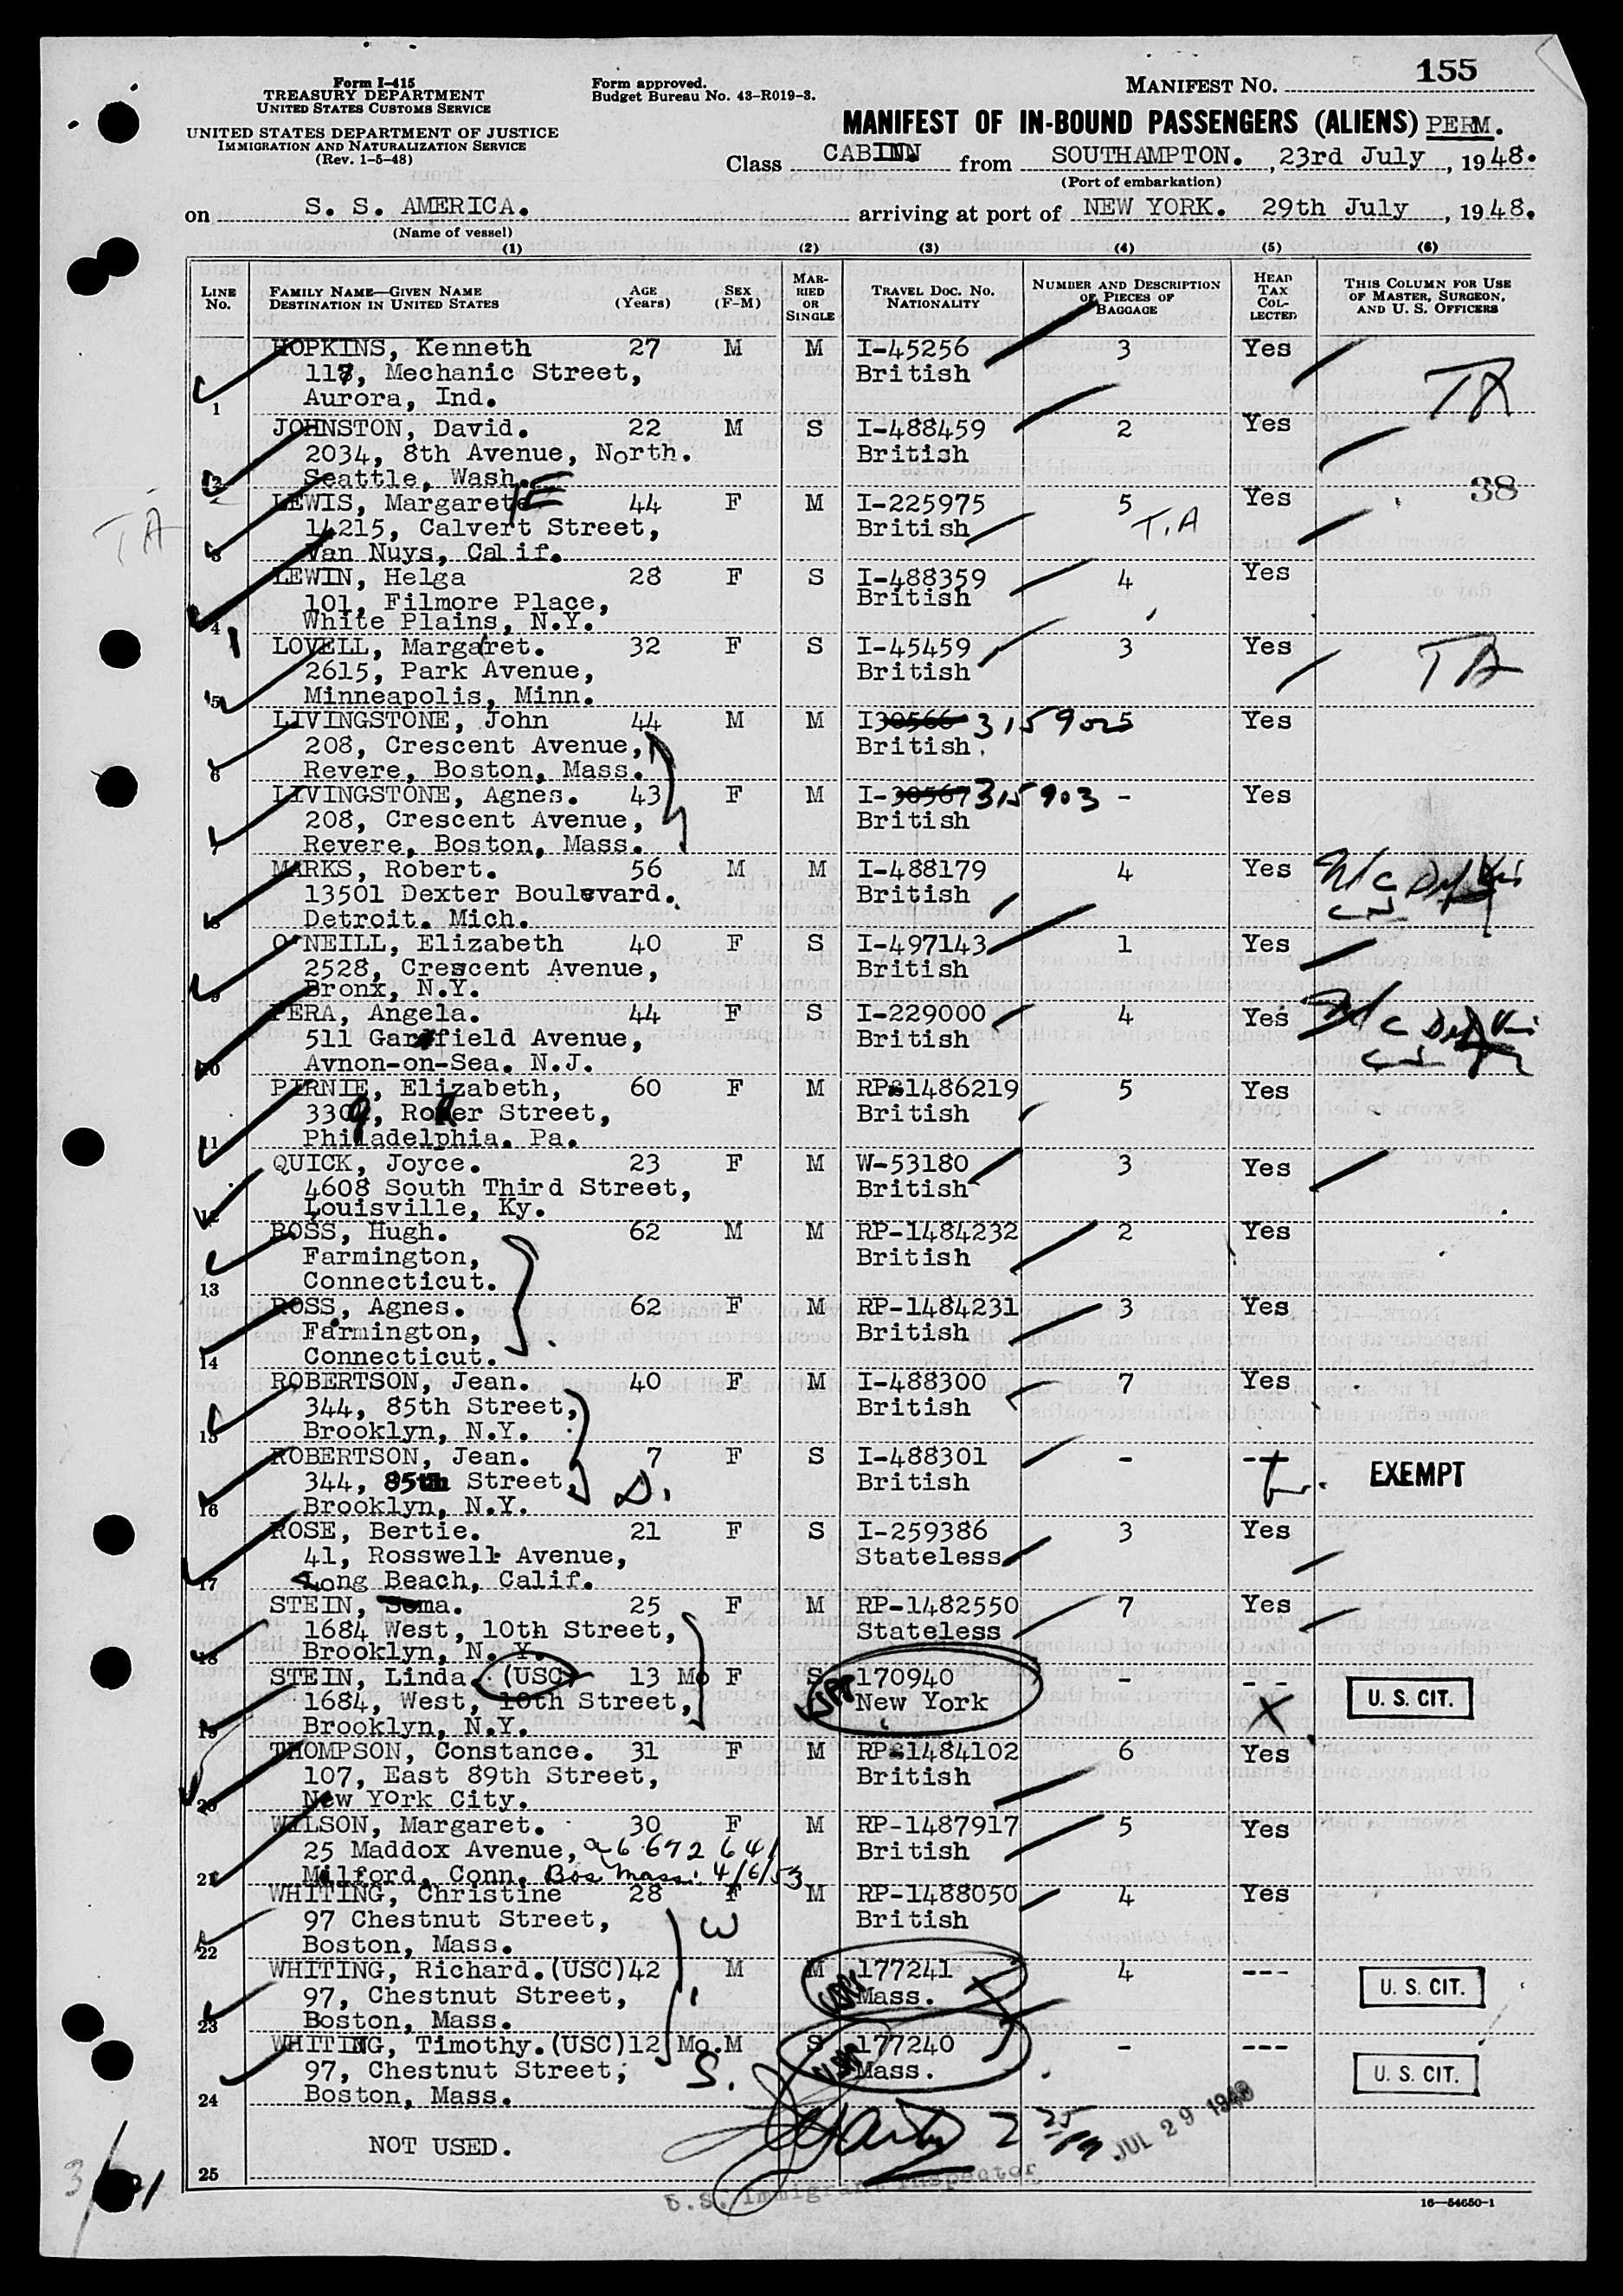 155
Form I-415
TREASURY DEPARTMENT
UNITED STATES CUSTOMS SERVICE
Form approved.
Budget Bureau No. 43-R019-3.
MANIFEST NO.
UNITED STATES DEPARTMENT OF JUSTICE
IMMIGRATION AND NATURALIZATION SERVICE
(Rev. 1-5-48)
MANIFEST OF IN-BOUND PASSENGERS (ALIENS) PERM.
Class CABIN from SOUTHAMPTON. , 23rd July , 1948.
(Port of embarkation)
on S. S. AMERICA. arriving at port of NEW YORK. 29th July , 1948.
(Name of vessel)
(1) (2) (3) (4) (5) (6)
LINE NO. FAMILY NAME—GIVEN NAME DESTINATION IN UNITED STATES AGE (Years) SEX (F-M) MARRIED OR SINGLE TRAVEL DOC. NO. NATIONALITY NUMBER AND DESCRIPTION OF PIECES OF BAGGAGE HEAD TAX COLLECTED THIS COLUMN FOR USE OF MASTER, SURGEON, AND U. S. OFFICERS
HOPKINS, Kenneth 27 M M I-45256 3 Yes
Mechanic Street, British TA
1 Aurora, Ind.
JOHNSTON, David. 22 M S I-488459 2 Yes
2034, 8th Avenue, North. British
2 Seattle, Wash.
38
LEWIS, Margarete IE 44 F M I-225975 5 Yes
TA 14215, Calvert Street, British T.A
3 Van Nuys, Calif.
LEWIN, Helga 28 F S I-488359 4 Yes
101, Filmore Place, British
4 White Plains, N.Y.
LOVELL, Margaret. 32 F S I-45459 3 Yes
2615, Park Avenue, British TA
5 Minneapolis, Minn.
LIVINGSTONE, John 44 M M I30566 315902 5 Yes
208, Crescent Avenue, British.
6 Revere, Boston, Mass.
LIVINGSTONE, Agnes. 43 F M I-30567 315903 - Yes
208, Crescent Avenue, British
7 Revere, Boston, Mass.
MARKS, Robert. 56 M M I-488179 4 Yes
13501 Dexter Boulevard. British
8 Detroit. Mich.
O'NEILL, Elizabeth 40 F S I-497143 1 Yes
2528, Crescent Avenue, British
9 Bronx, N.Y.
PERA, Angela. 44 F S I-229000 4 Yes
511 Garfield Avenue, British
10 Avnon-on-Sea. N.J.
PIRNIE, Elizabeth, 60 F M RP-1486219 5 Yes
Street, British
11 Philadelphia. Pa.
QUICK, Joyce. 23 F M W-53180 3 Yes
4608 South Third Street, British
12 Louisville, Ky.
ROSS, Hugh. 62 M M RP-1484232 2 Yes
Farmington, British
13 Connecticut.
ROSS, Agnes. 62 F M RP-1484231 3 Yes
Farmington, British
14 Connecticut.
ROBERTSON, Jean. 40 F M I-488300 7 Yes
344, 85th Street, British
15 Brooklyn, N.Y.
ROBERTSON, Jean. 7 F S I-488301 - ---
344, 85th Street, D. British EXEMPT
16 Brooklyn, N.Y.
ROSE, Bertie. 21 F S I-259386 3 Yes
41, Rosswell Avenue, Stateless
17 Long Beach, Calif.
STEIN, 25 F M RP-1482550 7 Yes
1684 West, 10th Street, Stateless
18 Brooklyn, N.Y.
STEIN, Linda. (USC) 13 Mo F S 170940 - --
1684, West, 10th Street, New York X U. S. CIT.
19 Brooklyn, N.Y.
THOMPSON, Constance. 31 F M RP-1484102 6 Yes
107, East 89th Street, British
20 New York City.
WILSON, Margaret. 30 F M RP-1487917 5 Yes
25 Maddox Avenue, a6 672 641 British
21 Milford, Conn. Bos Mass. 4/6/53
WHITING, Christine 28 F M RP-1488050 4 Yes
97 Chestnut Street, W British
22 Boston, Mass.
WHITING, Richard. (USC) 42 M M 177241 4 ---
97, Chestnut Street, Mass. U. S. CIT.
23 Boston, Mass.
WHITING, Timothy. (USC) 12 Mo. M S 177240 - ---
97, Chestnut Street, S. Mass. U. S. CIT.
24 Boston, Mass.
JUL 29 1948
NOT USED.
25
U.S. Immigrant Inspector
16—54650-1